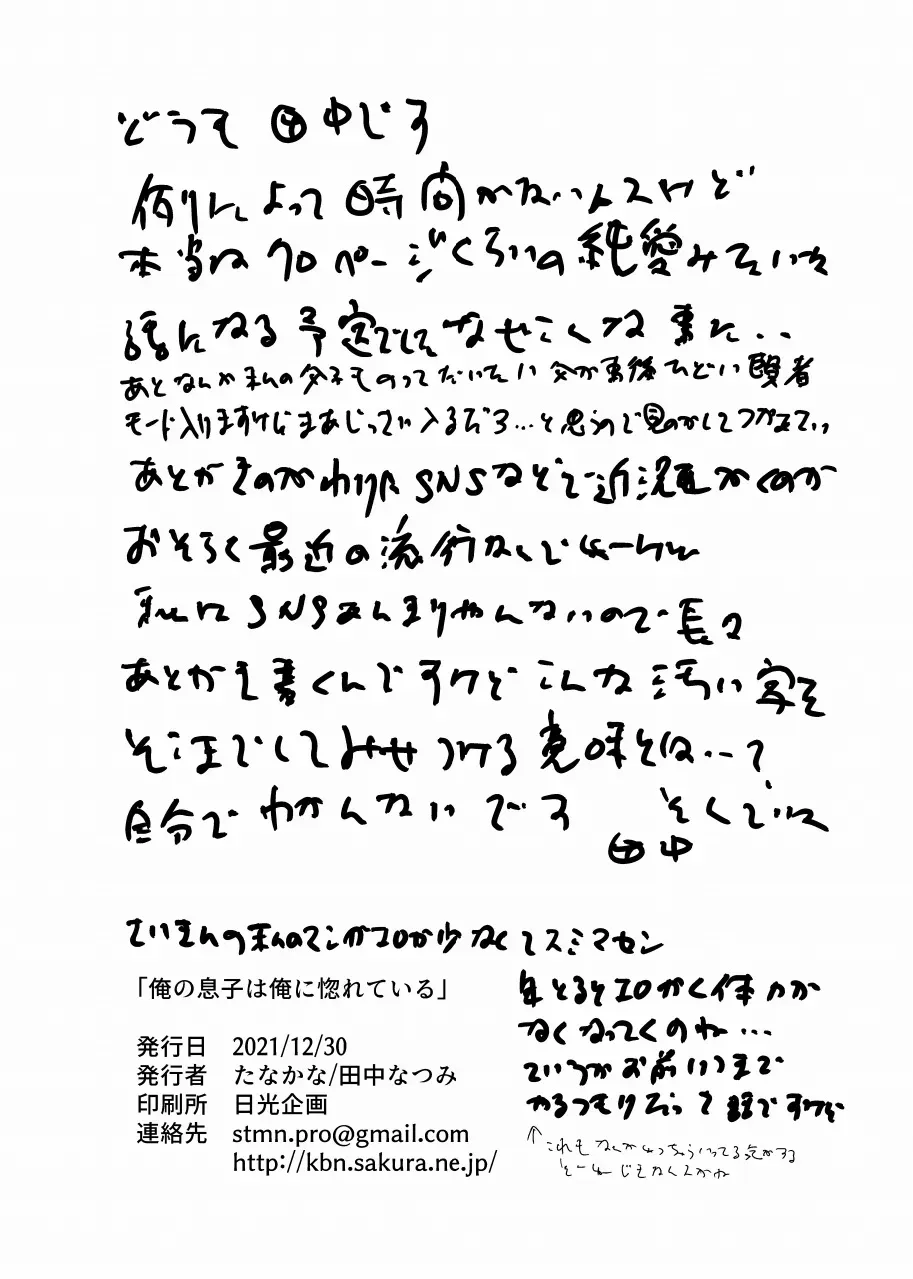 どうも 田中です
例によって時間がないんスけど
本当は70ページくらいの純愛みたいな
話になる予定でしてなぜこんな事に..
あとなんか私の父子ものってだいたい父が事後ひどい賢者
モード入りますけどまあじっさい入るだろ…と思うので見のがしてつかあさい
あとがきのかわりに SNSなどで近況かくのが
おそらく最近の流行なんで
私は SNSあんまりやんないので長々
あとがきを書くんですけどこんな汚い字を
そこまでしてみせつける意味とは…って
自分でわかんないです そんくでは
田中
さいきんの私のマンガエロが少なくてスミマセン
「俺の息子は俺に惚れている」
年とるとエロかく体力が
なくなってくのね…
ていうかお前いつまで
かくつもりだって話ですけど
↑これもなんか いってる気がする
発行日 2021/12/30
発行者 たなかな/田中なつみ
印刷所 日光企画
連絡先 stmn.pro@gmail.com
http://kbn.sakura.ne.jp/